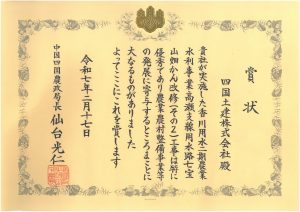 賞状
四国土建株式会社殿
貴社が実施した香川用水二期農業
水利事業高瀬支線用水路七宝
山畑かん改修(その2)工事は特に
優秀であり農業農村整備事業等
の発展に寄与するところまことに
大なるものがありました
よってここにこれを賞します
令和七年二月十七日
中国四国農政局長 仙台光仁